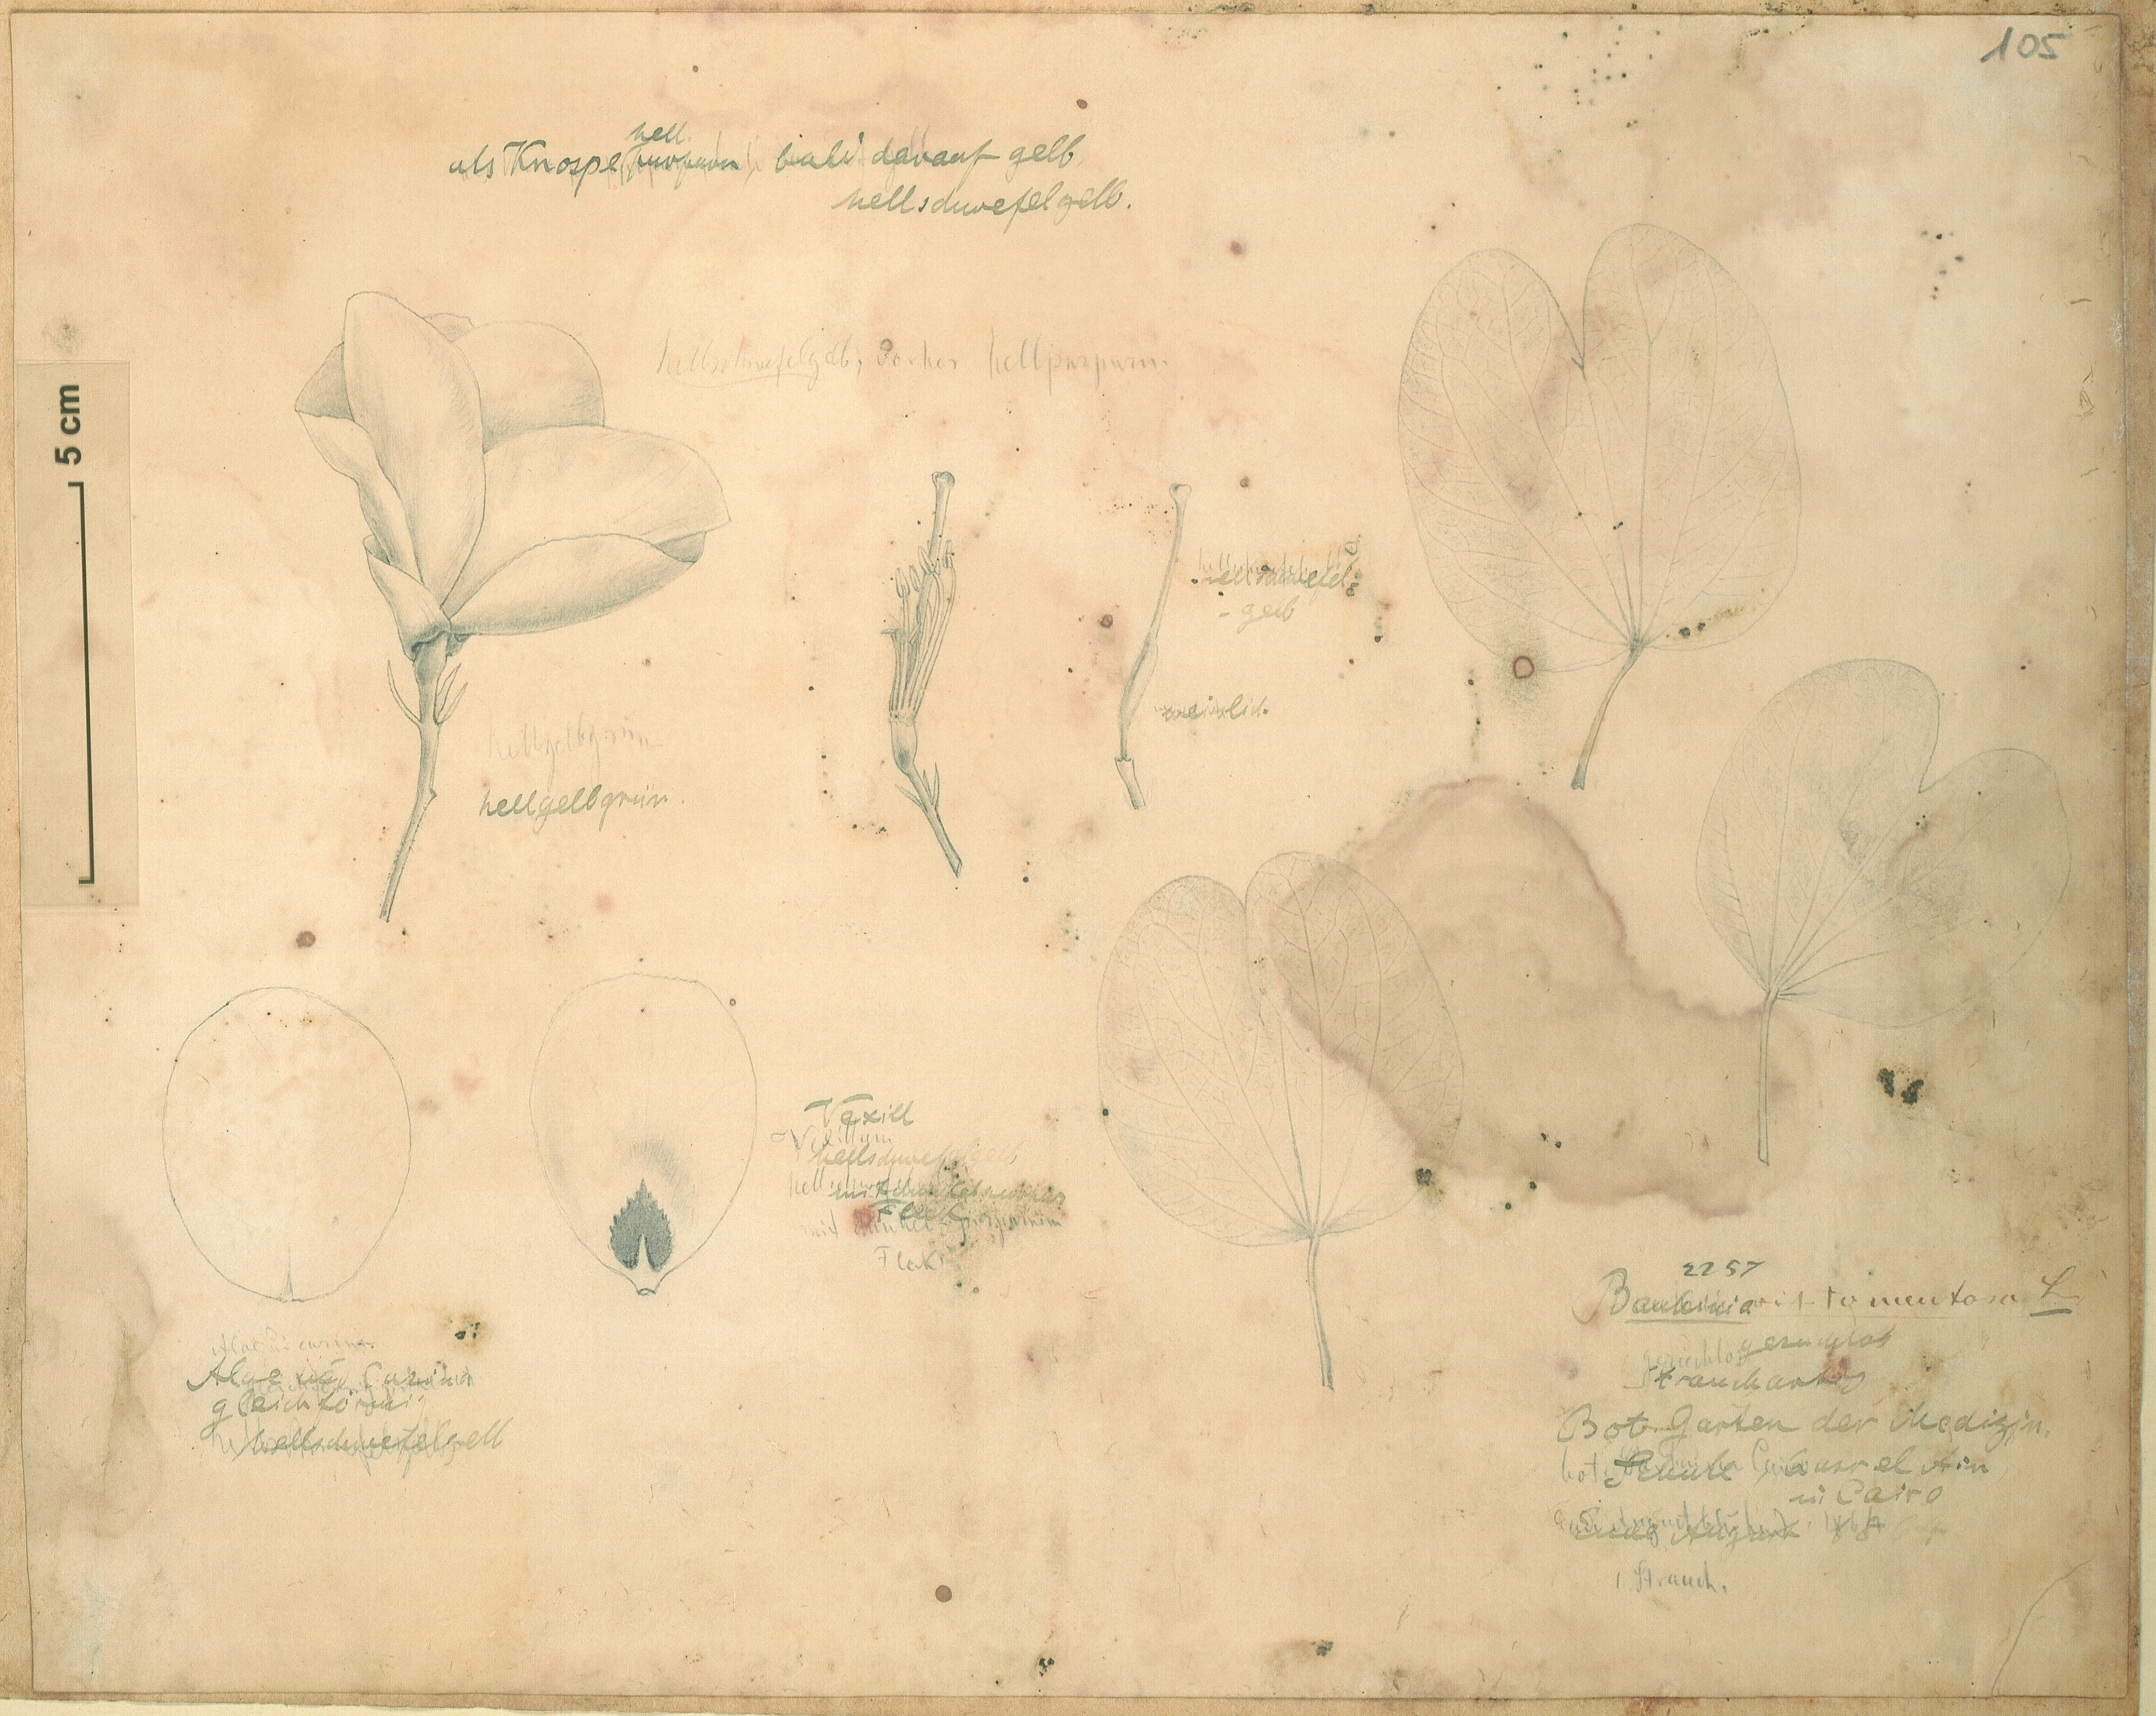 105
hell
als Knospe purpurn, bald darauf gelb
hellschwefelgelb.
hellschwefelgelb, vorher hellpurpurn.
5 cm
hellschwefel-
- gelb
weislich.
hellgelbgrün
hellgelbgrün.
Vexill
Vexillum
hellschwefelgelb
mit
Fleck
mit dunkel-purpurnem
Fleck
Alae u. carina
Alae und Carina
gleichförmig
hellschwefelgelb
2257
Bauhinia tomentosa L
geruchlos geruchlos
Strauchartig
Bot. Garten der Medizin.
bot. Schule Casr el Ain
in Cairo
Ende 1864
1 Strauch.